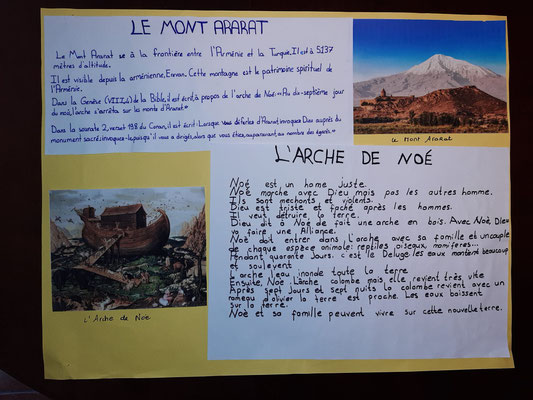 LE MONT ARARAT
Le Mont Ararat se à la frontière entre l'Arménie et la Turquie. Il est à 5137
mètres d'altitude.
Il est visible depuis la arménienne, Erevan. Cette montagne est le patrimoine spirituel de
l'Arménie.
Dans la Genèse (VIII,4) de la Bible, il est écrit, à propos de l'arche de Noé: « Au dix-septième jour
du mois, l'arche s'arrêta sur les monts d'Ararat »
Dans la sourate 2, verset 198 du Coran, il est écrit: Lorsque vous déferlez d'Ararat, invoquez Dieu auprès du
monument sacré; invoquez-le puisqu'il vous a dirigés, alors que vous étiez, auparavant, au nombre des égarés. »
Le Mont Ararat
L'ARCHE DE NOÉ
Noé est un home juste.
Noé marche avec Dieu mais pas les autres homme.
Ils sont mechants et violents.
Dieu est triste et faché après les hommes.
Il veut détruire la terre.
Dieu dit à Noé de fait une arche en bois. Avec Noé Dieu
va faire une Alliance.
Noé doit entrer dans l'arche avec sa famille et un couple
de chaque espèce animale: reptiles, oiseaux, mamiferes...
Pendant quarante Jours, c'est le Deluge les eaux montent beaucoup
et soulevent
l'arche l'eau inonde toute la terre
Ensuite, Noé l'Arche colombe mais elle revient très vite
Après sept Jours et sept nuits la colombe revient avec un
rameau d'olivier la terre est proche. Les eaux baissent
sur la terre.
Noé et sa famille peuvent vivre sur cette nouvelle terre.
L'Arche de Noé